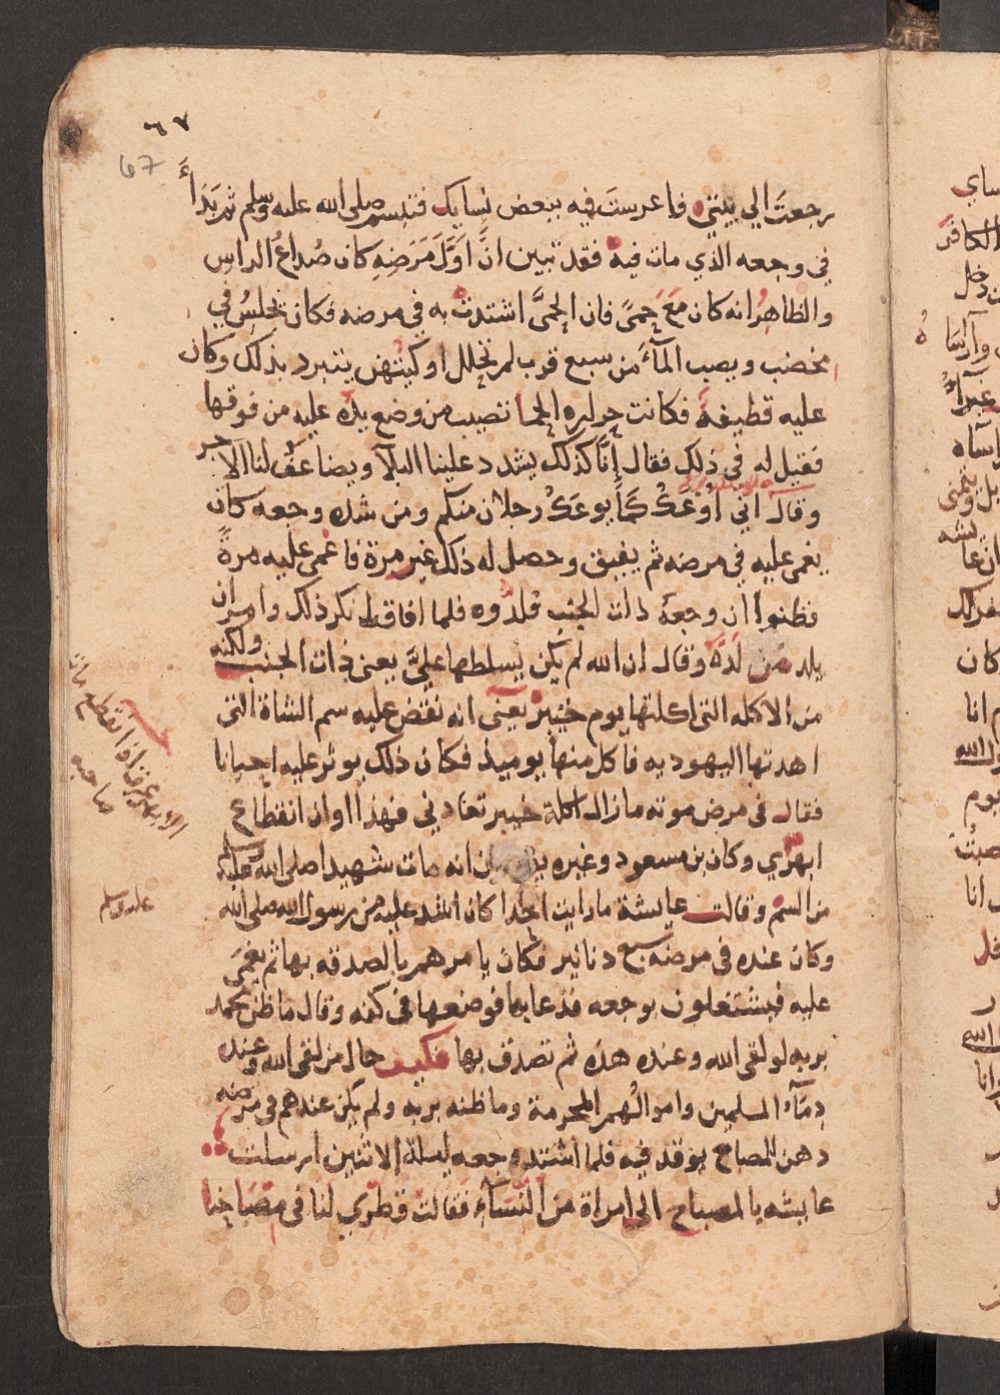 ٦٧
67
رجعتَ الي بيتي فاعرستَ فيه ببعض نسايك فتبسم صلى الله عليه وسلم ثم بَدَأَ
في وجعه الذي مات فيه فقد تبين انَّ اوَّلَ مَرَضِهِ كان صُداعُ الراسِ
والظاهرُ انه كان مَعَ حِمىً فان الحمىَّ اشتدت به في مرضه فكان يجلسُ في
مخضب ويصب المآءُ من سبع قرب لم تحلل اوكيتهن يتبرد بذلك وكان
عليه قطيفةٌ فكانت حراره الحما تصيب من وضع يدَه عليه من فوقها
فقيل له في ذلك فقال إنَّا كذلك يشدد علينا البلآ ويضاعفُ لنا الاجر
وقال اني اُوْعَكُ كَمَا يوعَكُ رجلان منكم ومن شدة وجعه كان
يغمى عليه في مرضه ثم يفيق وحصل له ذلك غير مرة فاغمى عليه مرةً
فظنوا ان وجعهُ ذات الجنب فلدُّوه فلما افاق انكر ذلك وامر ان
يلد من لَدَّهُ وقال ان الله لم يكن يسلطها عليَّ يعنى ذات الجنب ولكنه
من الاكله التى اكلتها يوم خيبر يعنى انه نقض عليه سم الشاة التى
اهدتها اليهوديه فاكل منها يوميذ فكان ذلك يوثر عليه احيانا
فقال فى مرض موته مازال اكلة خيبر تعتادني فهذا اوان انقطاع
ابهري وكان بن مسعود وغيره يقولون انه مات شهيدا صلى الله عليه وسلم
من السم وقالت عايشة ما رايت احدا كان اشد عليه من رسول الله صلى الله
عليه وسلم
وكان عنده فى مرضه سبع دنانير فكان يامرهم بالصدقه بها ثم يغمى
عليه فيشتغلون بوجعه فدعا بها فوضعها فى كفه وقال ما ظن محمد
بربه لو لقى الله وعنده هذه ثم تصدق بها فكيف حال من لقى الله وعنده
دمآء المسلمين واموالُهم المحرمة وما ظنه بربه ولم يكن عندهم فى مرضه
دهن للمصباح يوقد فيه فلما اشتد وجعه ليلة الاثنين ارسلت
عايشه بالمصباح الى امراة من النسآء فقالت قطري لنا فى مصباحنا
الابهر عرق اذا انقطع مات
صاحبه